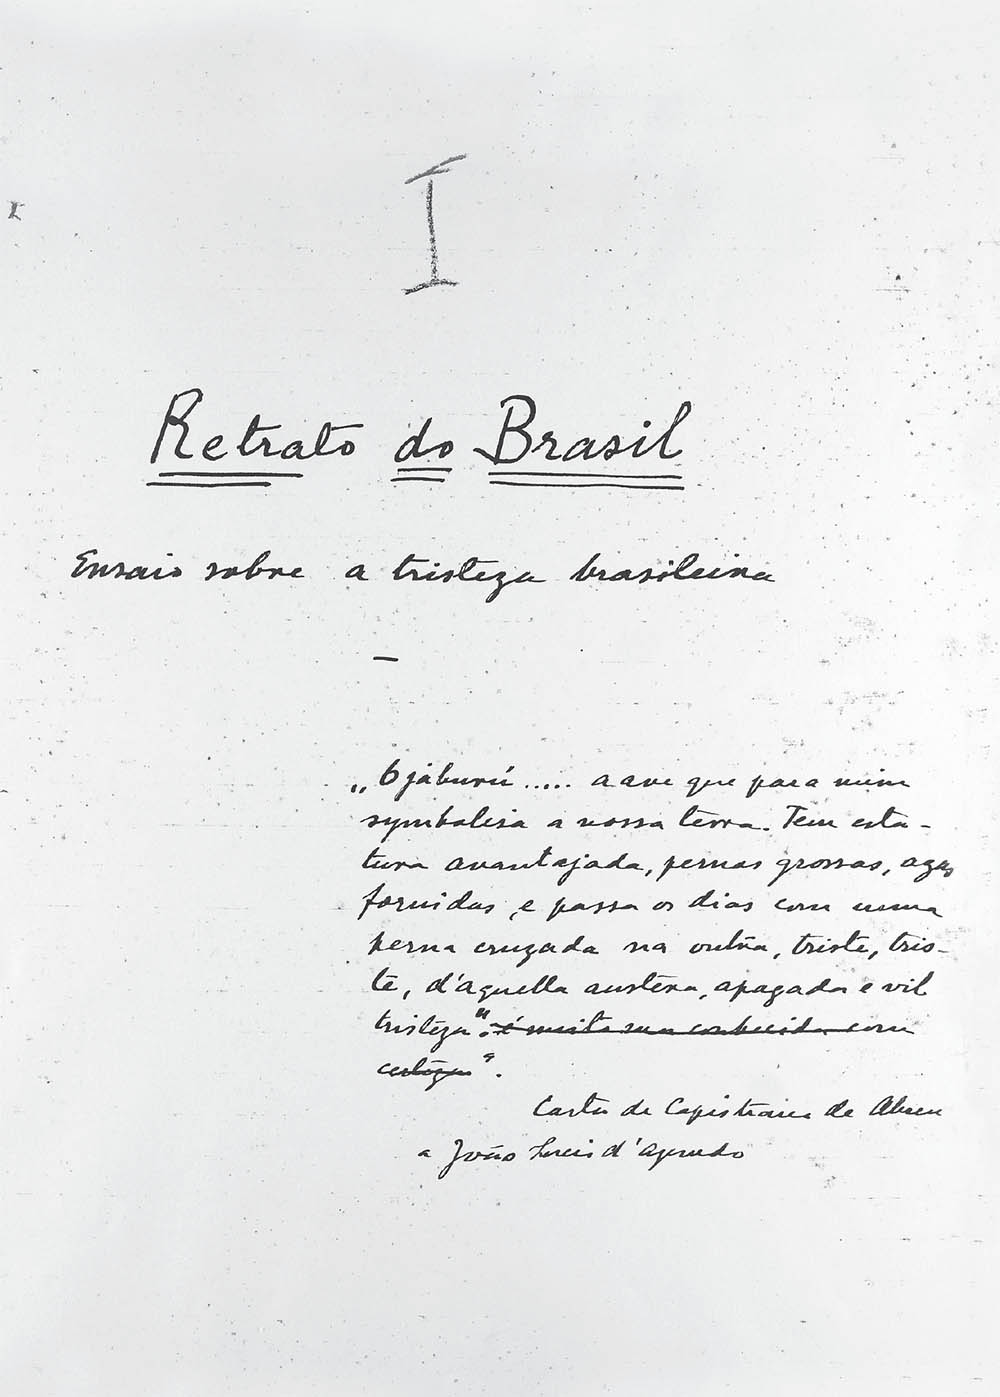 I
Retrato do Brasil
Ensaio sobre a tristeza brasileira
—
„O jáburú ..... a ave que para mim
symbolisa a nossa terra. Tem esta-
tura avantajada, pernas grossas, azas
fornidas e passa os dias com uma
perna cruzada na outra, triste, tris-
te, d'aquella austera, apagada e vil
tristeza". é muita sua conhecida com
certeza".
Carta de Capistrano de Abreu
a João Lucio d'Azevedo